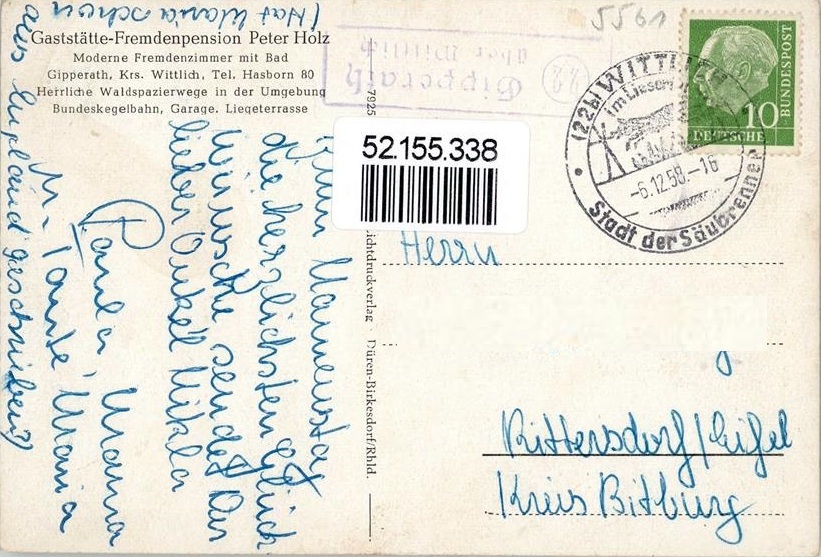 Gaststätte-Fremdenpension Peter Holz
Moderne Fremdenzimmer mit Bad
Gipperath, Krs. Wittlich, Tel. Hasborn 80
Herrliche Waldspazierwege in der Umgebung
Bundeskegelbahn, Garage, Liegeterrasse
Gipperath
über Wittlich
(22b)
5561
(22b) WITTLICH
im Lieser
-6.12.58.-16
Stadt der Säubrenner
BUNDESPOST
10
DEUTSCHE
52.155.338
7925
ichtdruckverlag · Düren-Birkesdorf/Rhld.
Zum Namenstag
die herzlichsten Glück
wünsche sendet Dir
lieber Onkel Nikla
Paula, Mama
u. Tante Maria
(Hat Maria schon
aus England geschrieben?)
Herrn
Rittersdorf/Eifel
Kreis Bitburg